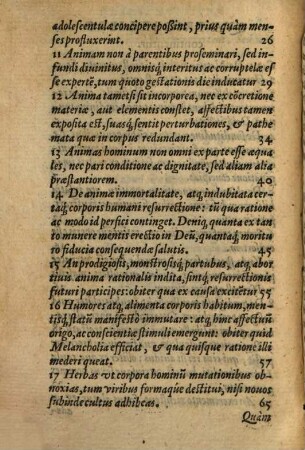 adolescentulæ concipere poßint, prius quàm men-
ses profluxerint. 26
11 Animam non à parentibus proseminari, sed in-
fundi diuinitus, omnisq́; interitus ac corruptelæ es
se expertẽ, tum quoto gestationis die inducatur 29
12 Anima tametsi sit incorporea, nec ex cõcretione
materiæ, aut elementis constet, affectibus tamen
exposita est, suasq́; sentit perturbationes, & pathe
mata quæ in corpus redundant. 34
13 Animas hominum non omni ex parte esse æqua
les, nec pari conditione ac dignitate, sed aliam alia
præstantiorem. 40
14 De animæ immortalitate, atq; indubitata cer-
taq́; corporis humani resurrectione: tũ qua ratione
ac modo id perfici continget. Deniq; quanta ex tan
to munere mentis erectio in Deũ, quantaq́; moritu
ro fiducia consequendæ salutis. 45
15 An prodigiosis, monstrosisq́; partubus, atq; abor
tiuis anima rationalis indita, sintq́; resurrectionis
futuri participes: obiter qua ex causa excitẽtur 55
16 Humores atq; alimenta corporis habitum, men-
tisq́; statũ manifestò immutare: atq; hinc affectuũ
origo, ac conscientiæ stimuli emergunt: obiter quid
Melancholia efficiat, & qua quisque ratione illi
mederi queat. 57
17 Herbas vt corpora hominũ mutationibus ob-
noxias, tum viribus formaq́ue destitui, nisi nouos
subinde cultus adhibeas. 65
Quàm